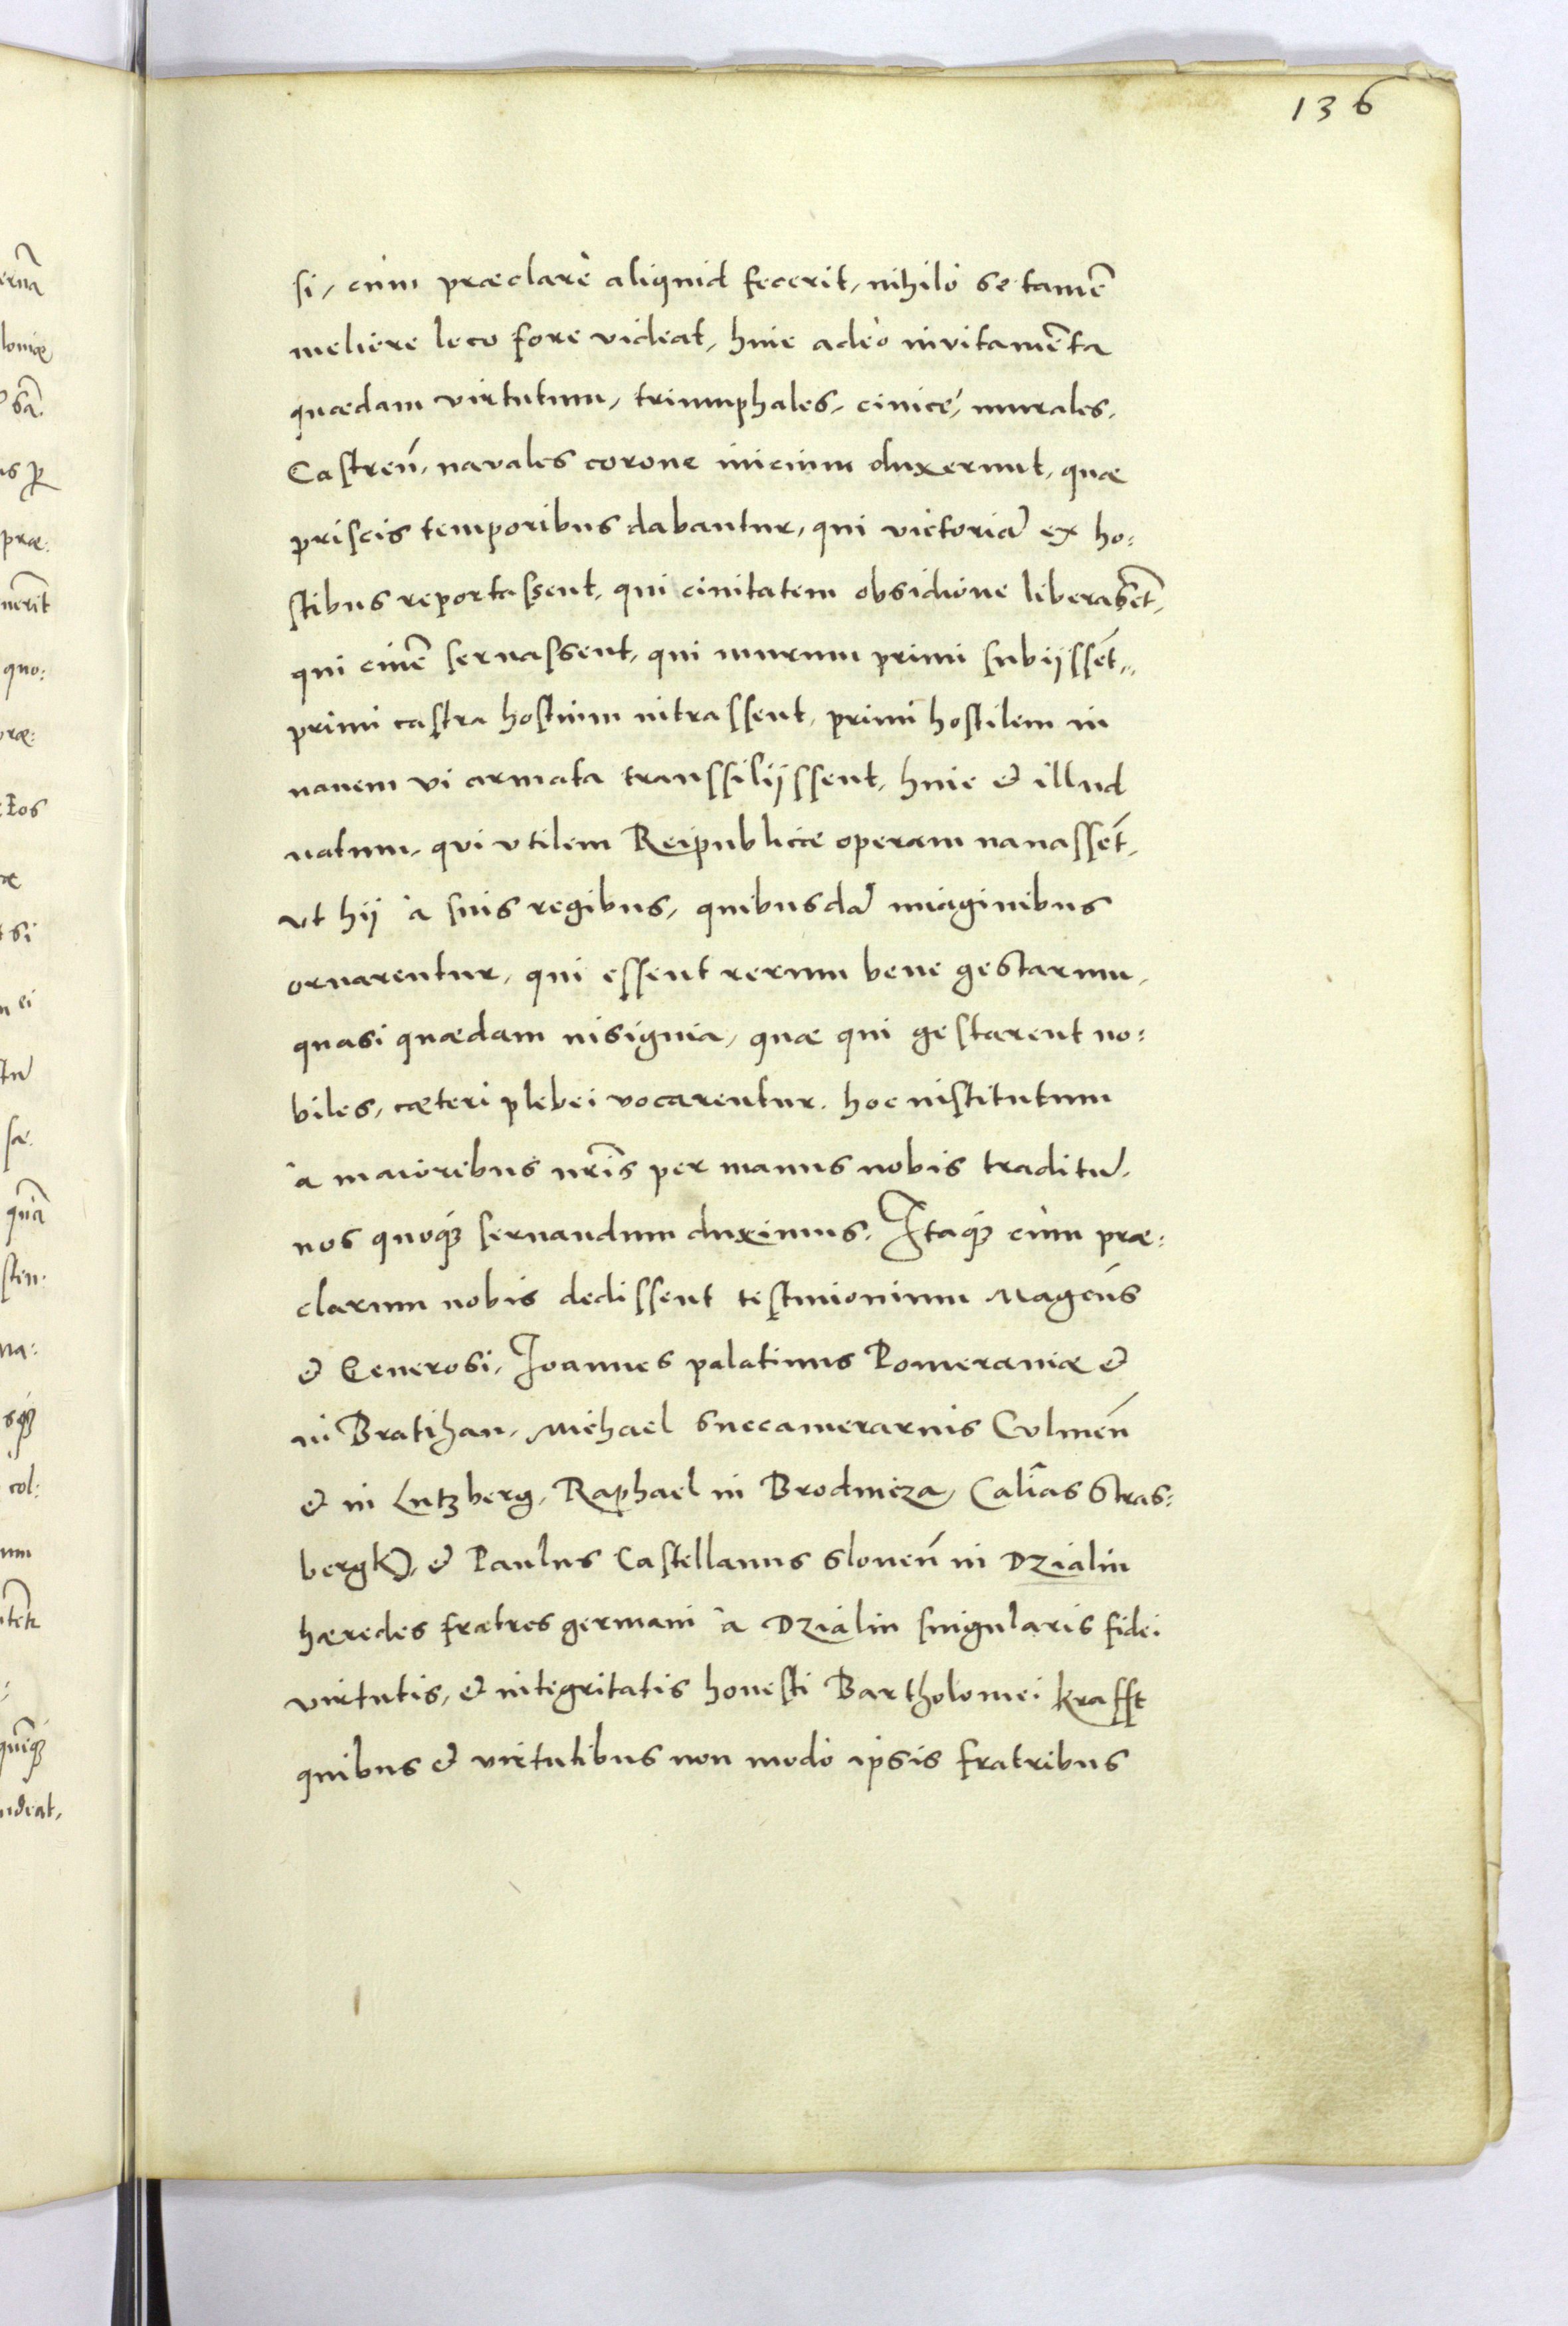 136
si, cùm præclarè aliquid fecerit, nihilò se tamẽ
meliore loco fore videat, hinc adeò invitamẽta
quædam virtutum, triumphales, ciuicę, murales,
Castreñ, navales coronę inicium duxerunt, quæ
priscis temporibus dabantur, qui victoriã ex ho:
stibus reportassent, qui ciuitatem obsidione liberassẽt,
qui ciuẽ seruassent, qui murum primi subijssẽt,
primi castra hostium intrassent, primi hostilem in
nauem vi armata transsilijssent, hinc & illud
natum, qui vtilem Reipublicæ operam nauassẽt,
vt hij à suis regibus, quibusdã imaginibus
ornarentur, qui essent rerum bene gestarum,
quasi quædam insignia, quæ qui gestarent no:
biles, cæteri plebei vocarentur. hoc institutum
à maioribus nr̃is per manus nobis traditũ,
nos quoq; seruandum duximus. Itaq; cùm præ:
clarum nobis dedissent testimonium Magcũs
& Generosi, Ioannes palatinus Pomeraniæ &
in Bratihan, Michael Succamerarius Culmeñ
& in Lutzberg, Raphael in Brodnicza, Cap̃lias Stras:
bergk), & Paulus Castellanus Sloneñ in Dzialin
hæredes fratres germani à Dzialin singularis fidei
virtutis, & integritatis honesti Bartholomei krafft
quibus & virtutibus non modò ipsis fratribus